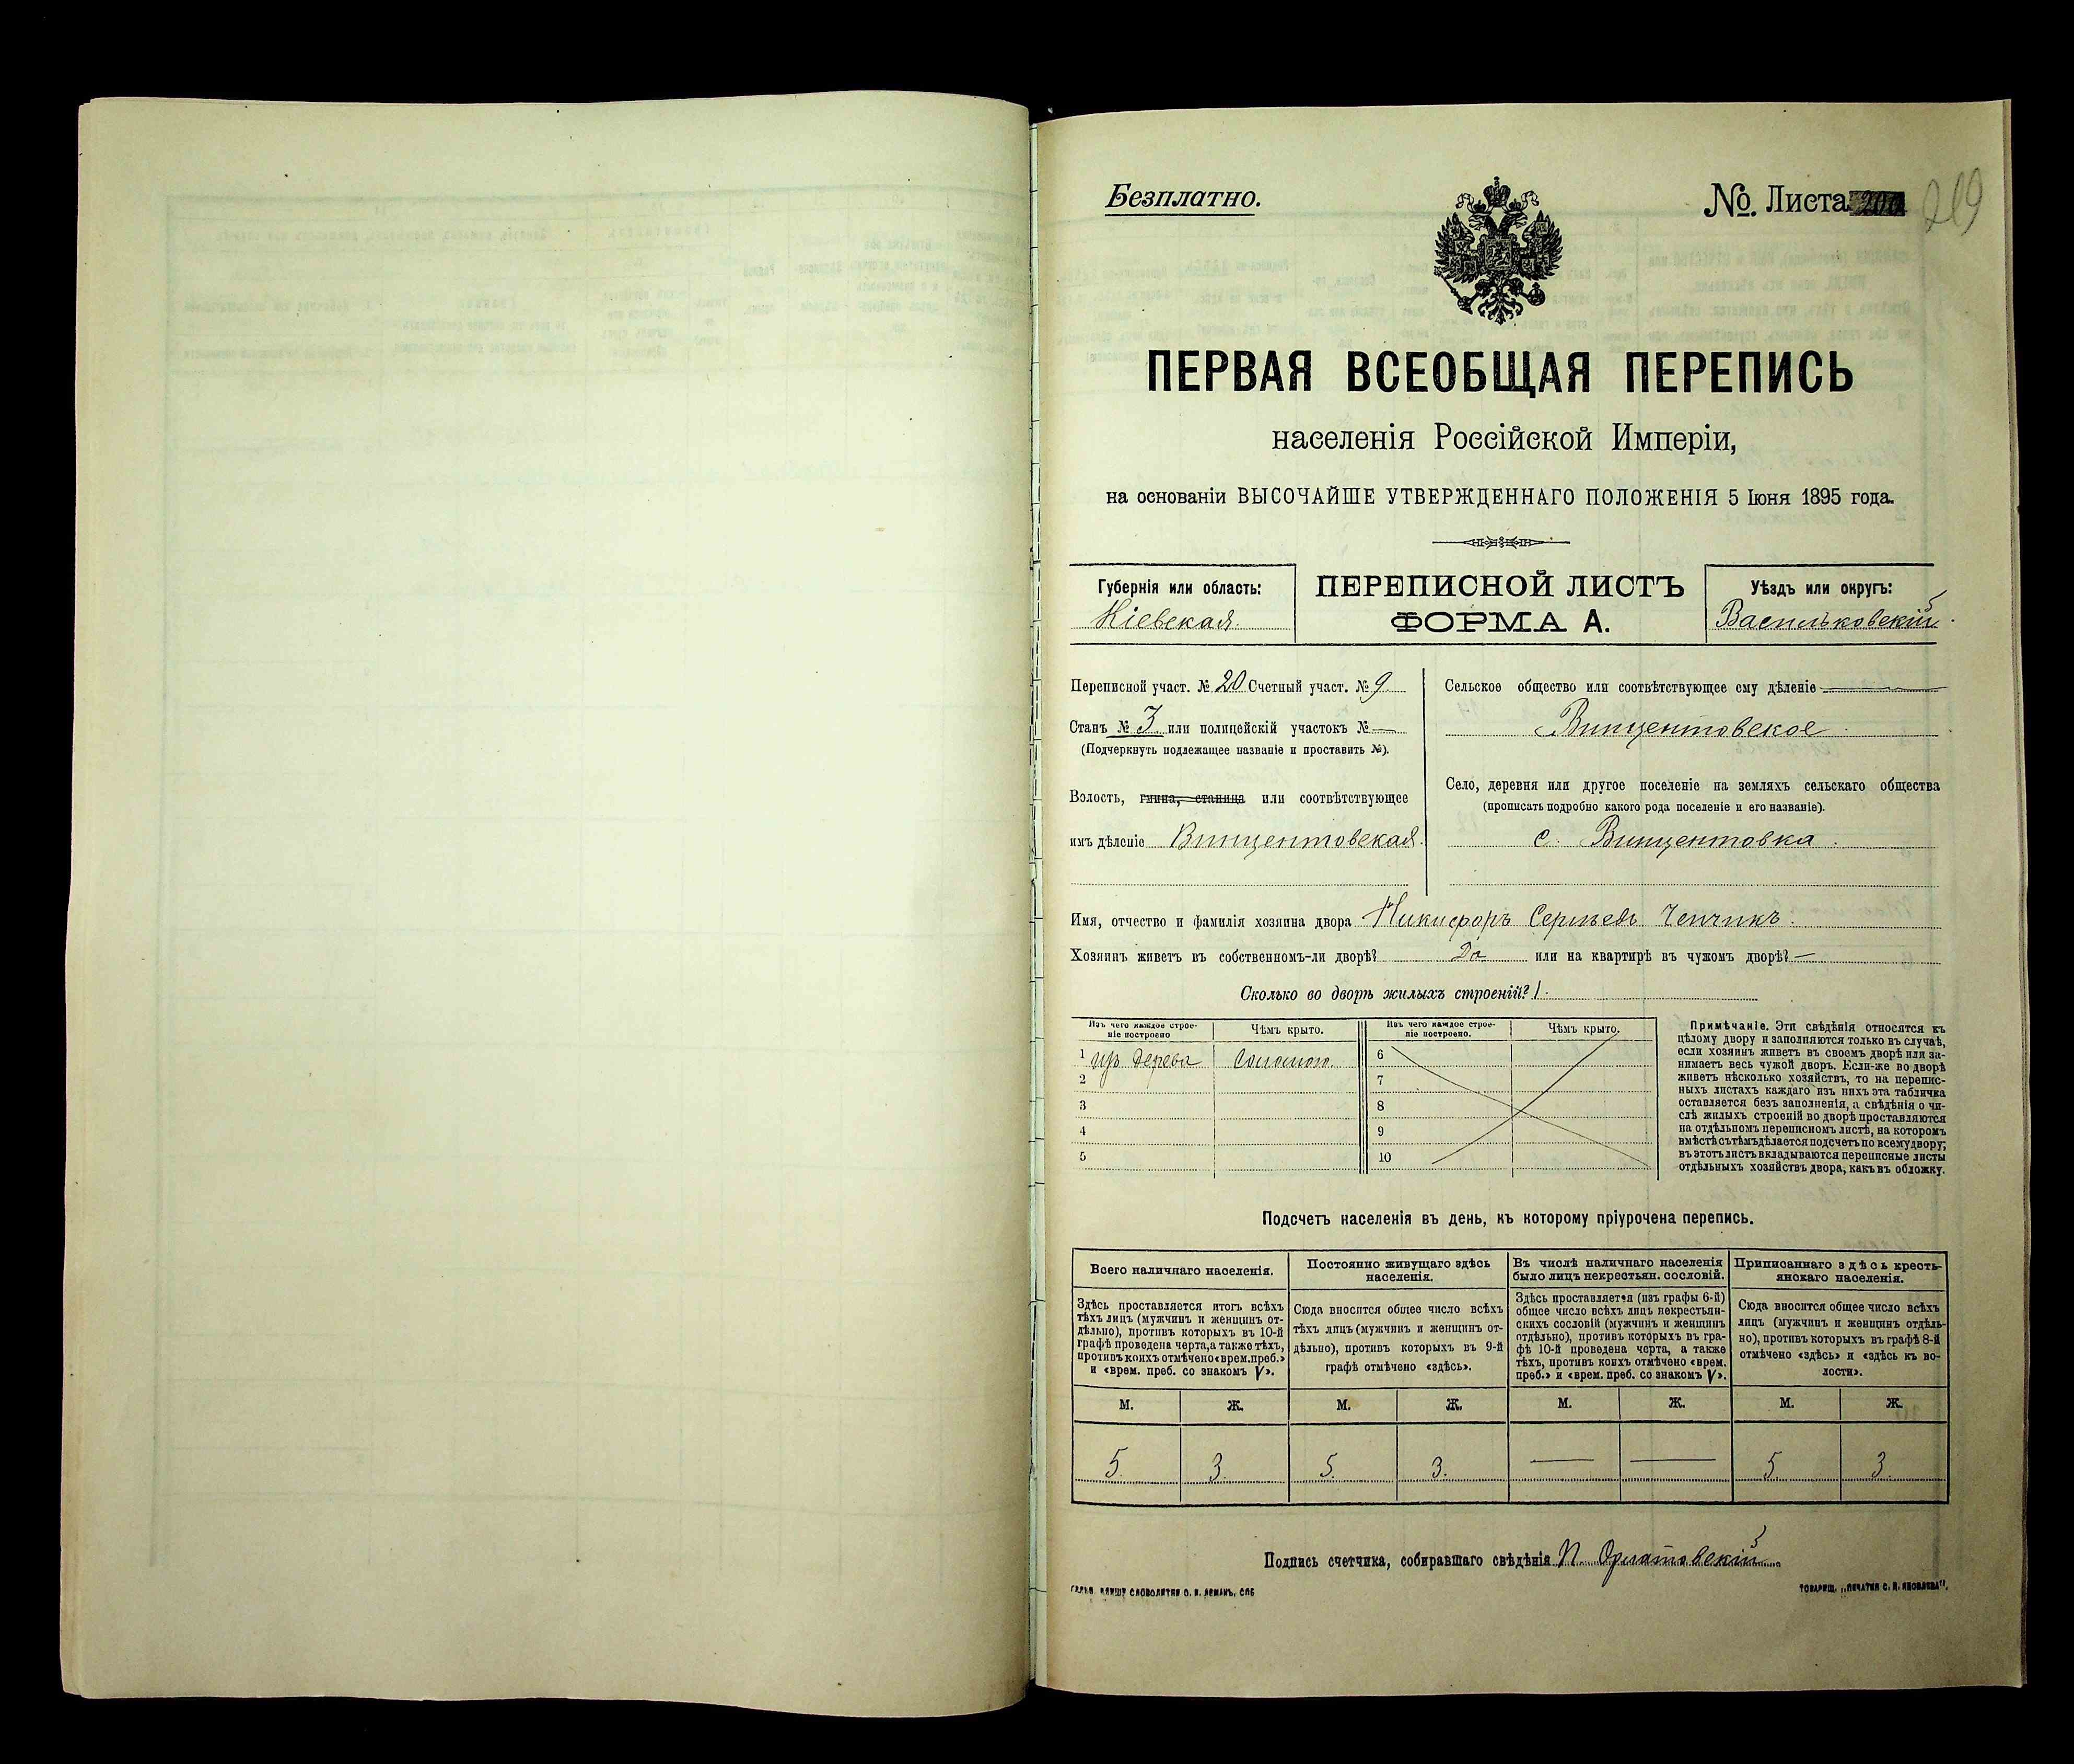 Безплатно.
№ Листа 200
219
ПЕРВАЯ ВСЕОБЩАЯ ПЕРЕПИСЬ
населенія Россійской Имперіи,
на основаніи ВЫСОЧАЙШЕ УТВЕРЖДЕННАГО ПОЛОЖЕНІЯ 5 Іюня 1895 года.
Губернія или область:
Кіевская.
ПЕРЕПИСНОЙ ЛИСТЪ
ФОРМА А.
Уѣздъ или округъ:
Васильковскій.
Переписной участ. № 20 Счетный участ. № 9
Станъ № 3. или полицейскій участокъ № —
(Подчеркнуть подлежащее названіе и проставить №).
Волость, гмина, станица или соотвѣтствующее
имъ дѣленіе Винцентовская.
Сельское общество или соотвѣтствующее ему дѣленіе
Винцентовское.
Село, деревня или другое поселеніе на земляхъ сельскаго общества
(прописать подробно какого рода поселеніе и его названіе).
с. Винцентовка.
Имя, отчество и фамилія хозяина двора Никифоръ Сергѣевъ Чепчикъ.
Хозяинъ живетъ въ собственномъ-ли дворѣ? Да или на квартирѣ въ чужомъ дворѣ? —
Сколько во дворѣ жилыхъ строеній? 1.
Изъ чего каждое строеніе построено
Чѣмъ крыто.
Изъ чего каждое строеніе построено.
Чѣмъ крыто.
1 изъ дерева Соломою.
2
3
4
5
6
7
8
9
10
Примѣчаніе. Эти свѣдѣнія относятся къ
цѣлому двору и заполняются только въ случаѣ,
если хозяинъ живетъ въ своемъ дворѣ или за-
нимаетъ весь чужой дворъ. Если-же во дворѣ
живетъ нѣсколько хозяйствъ, то на перепис-
ныхъ листахъ каждаго изъ нихъ эта табличка
оставляется безъ заполненія, а свѣдѣнія о чи-
слѣ жилыхъ строеній во дворѣ проставляются
на отдѣльномъ переписномъ листѣ, на которомъ
вмѣстѣ съ тѣмъ дѣлается подсчетъ по всему двору;
въ этотъ листъ вкладываются переписные листы
отдѣльныхъ хозяйствъ двора, какъ въ обложку.
Подсчетъ населенія въ день, къ которому пріурочена перепись.
Всего наличнаго населенія.
Здѣсь проставляется итогъ всѣхъ
тѣхъ лицъ (мужчинъ и женщинъ от-
дѣльно), противъ которыхъ въ 10-й
графѣ проведена черта, а также тѣхъ,
противъ коихъ отмѣчено «врем. преб.»
и «врем. преб. со знакомъ V».
Постоянно живущаго здѣсь
населенія.
Сюда вносится общее число всѣхъ
тѣхъ лицъ (мужчинъ и женщинъ от-
дѣльно), противъ которыхъ въ 9-й
графѣ отмѣчено «здѣсь».
Въ числѣ наличнаго населенія
было лицъ некрестьян. сословій.
Здѣсь проставляется (изъ графы 6-й)
общее число всѣхъ лицъ некрестьян-
скихъ сословій (мужчинъ и женщинъ
отдѣльно), противъ которыхъ въ гра-
фѣ 10-й проведена черта, а также
тѣхъ, противъ коихъ отмѣчено «врем.
преб.» и «врем. преб. со знакомъ V».
Приписаннаго здѣсь кресть-
янскаго населенія.
Сюда вносится общее число всѣхъ
лицъ (мужчинъ и женщинъ отдѣль-
но), противъ которыхъ въ графѣ 8-й
отмѣчено «здѣсь» и «здѣсь къ во-
лости».
М. Ж. М. Ж. М. Ж. М. Ж.
5. 3. 5. 3. — — 5 3.
Подпись счетчика, собиравшаго свѣдѣнія П.
СЛОВОЛИТНЯ О. И. ЛЕМАНЪ, СПБ
ТОВАРИЩ. „ПЕЧАТНЯ С. П. ЯКОВЛЕВА".